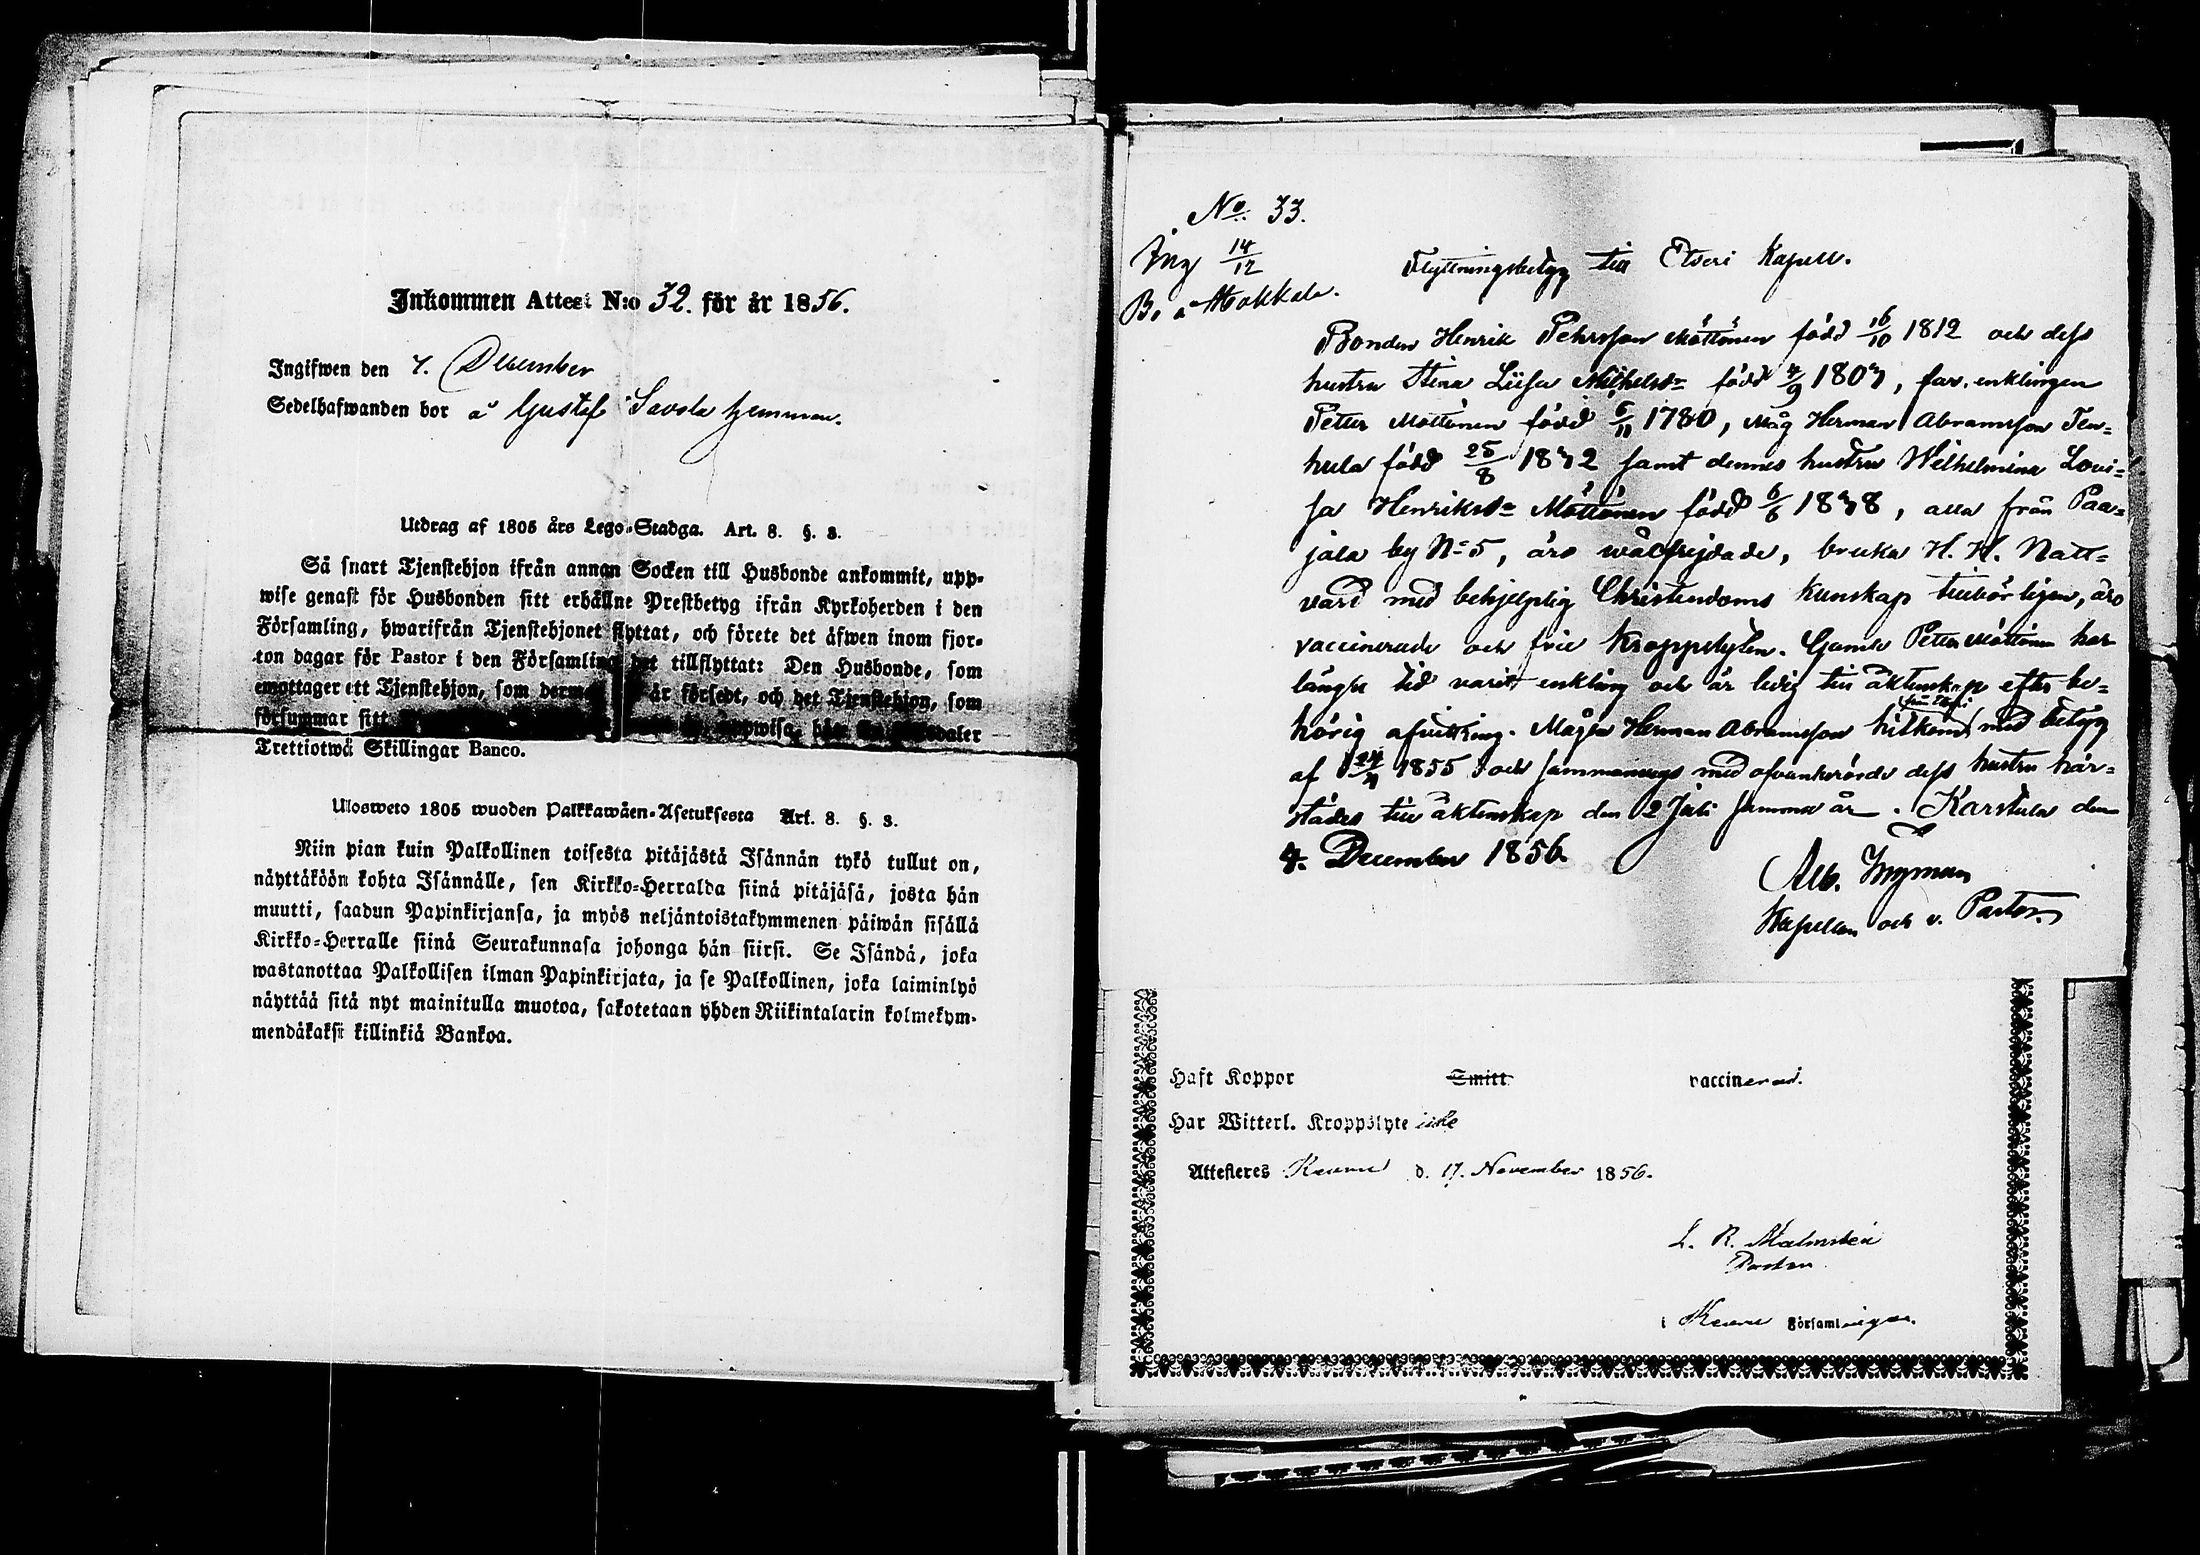 Inkommen Attest N:o 32. för år 1856.
Ingifwen den 7. December
Sedelhafwanden bor å Gustaf Savola hemman.
Utdrag af 1805 års Lego-Stadga. Art. 8. §. 3.
Så snart Tjenstehjon ifrån annan Socken till Husbonde ankommit, upp-
wise genast för Husbonden sitt erhållne Prestbetyg ifrån Kyrkoherden i den
Församling, hwarifrån Tjenstehjonet flyttat, och förete det äfwen inom fjor-
ton dagar för Pastor i den Församling det tillflyttat: Den Husbonde, som
emottager ett Tjenstehjon, som är försedt, och det Tjenstehjon, som
försummar sitt uppwisa,
Trettiotwå Skillingar Banco.
Ulosweto 1805 wuoden Palkkawäen-Asetuksesta Art. 8. §. 3.
Niin pian kuin Palkollinen toisesta pitäjästä Isännän tykö tullut on,
näyttäköön kohta Isännälle, sen Kirkko-Herralda siinä pitäjäsä, josta hän
muutti, saadun Papinkirjansa, ja myös neljäntoistakymmenen päiwän sisällä
Kirkko-Herralle siinä Seurakunnasa johonga hän siirsi. Se Isändä, joka
wastanottaa Palkollisen ilman Papinkirjata, ja se Palkollinen, joka laiminlyö
näyttää sitä nyt mainitulla muotoa, sakotetaan yhden Riikintalarin kolmekym-
mendäkaksi killinkiä Bankoa.
No 33.
Ing 14/12
B. å Mokkala.
Flyttningsbetyg till Etseri Kapell.
Bonden Henrik Pehrsson Möttönen född 16/10 1812 och dess
hustru Stina Liisa född 4/9 1807, far, enklingen
Petter Möttönen född 6/11 1780, Måg Herman Abramsson Ten-
hula född 25/8 1832 samt dennes hustru Wilhelmina Lovi-
sa Henriksd:r Möttönen född 6/6 1838, alla från Paa-
jala by N:o 5, äro wälfrejdade, bruka H. H. Natt-
vard med behjelplig Christendoms kunskap tillbörligen, äro
vaccinerade och frie Kroppslyten. Gamle Petter Möttönen har
längre tid varit enkling och är ledig till äktenskap efter be-
hörig afvittring. Mågen Herman Abramsson hitkom från Etseri med betyg
af 24/4 1855 och sammanvigs med ofvanberörde dess hustru här-
städes till äktenskap den 2 Juli samma år. Karstula den
4. December 1856.
Alb. Ingman
Kapellan och v. Pastor.
Haft Koppor Smitt vaccinerad.
Har Witterl. Kroppslyte icke
Attesteres Keuru d. 17. November 1856.
L. R. Malmstén
Pastor
i Keuru Församlingar.